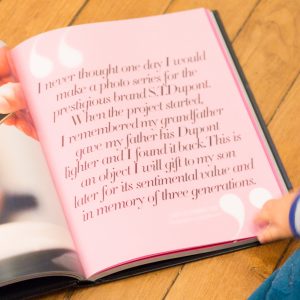 I never thought one day I would
make a photo series for the
prestigious brand S.T.Dupont.
When the project started,
I remembered my grandfather
gave my father his Dupont
lighter and I found it back. This is
an object I will gift to my son
later for its sentimental value and
in memory of three generations.